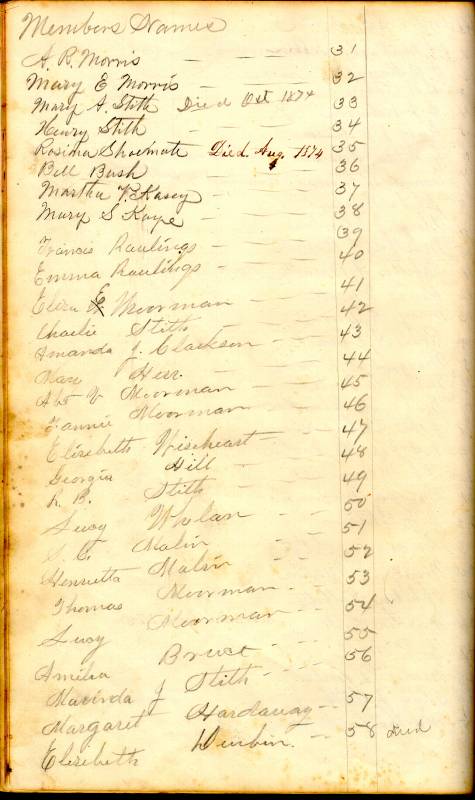 Members Names
A. R. Morris — — — 31
Mary E Morris — — — 32
Mary A. Stith Died Oct 1874 33
Henry Stith — — — 34
Rosima Shoemate Died Aug. 1874 35
Bill Bush — — 36
Martha P. Kasey — 37
Mary S Kaye — — 38
Francis Rawlings — — 39
Emma Rawlings — — 40
Eliza E Moorman — — 41
Charlie Stith — — 42
Amanda J. Clarkson — — 43
Mary Herr — — 44
V Moorman — — 45
Fannie Moorman — — 46
Elizebeth Wiseheart — — 47
Georgia Hill — 48
R. B. Stith — — 49
Lucy Whelan — — 50
S. E. Malin — — 51
Henrietta Malin — — 52
Thomas Moorman — — 53
Lucy Moorman — — 54
Amelia Bruce — — 55
Marinda J Stith — — 56
Margaret Hardaway — — 57
Elizebeth Durbin. — 58 Died